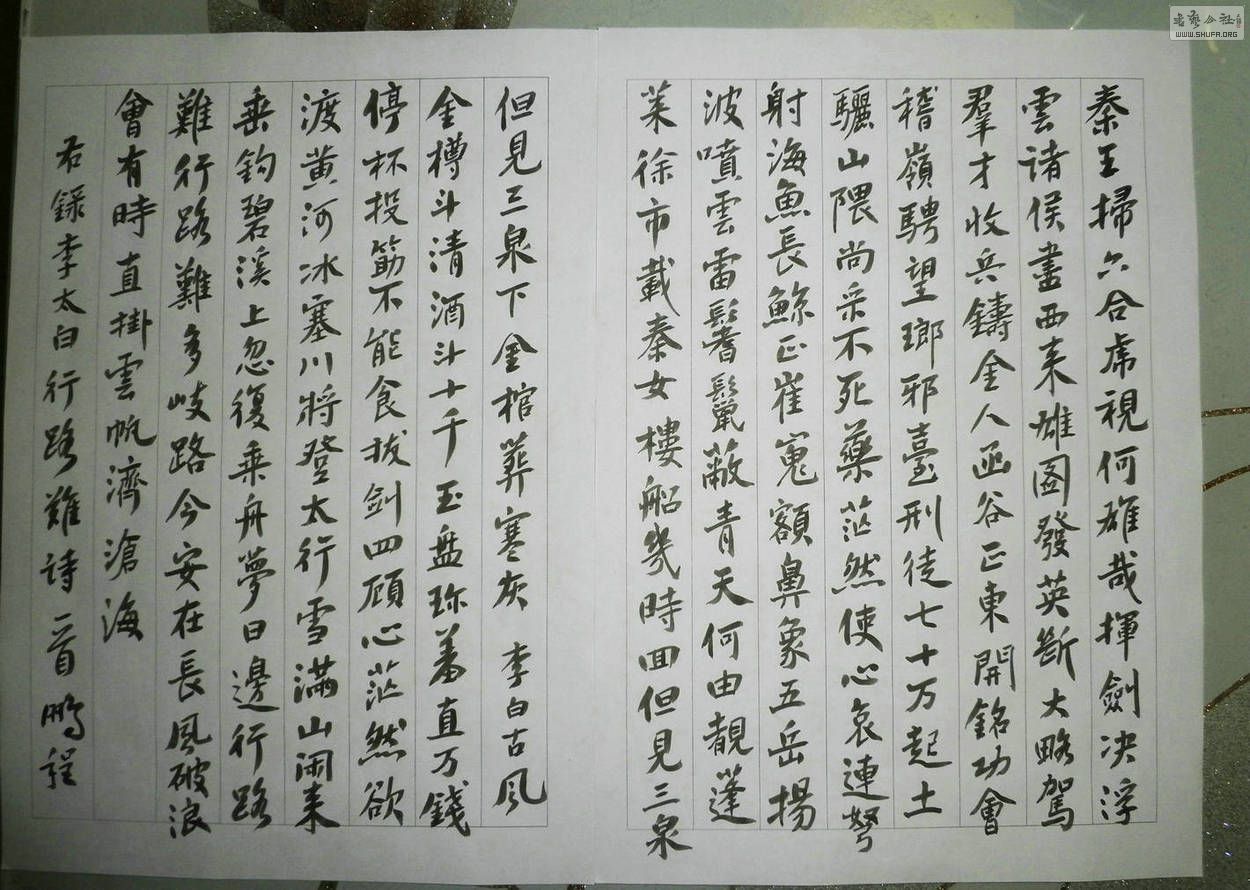 秦王掃六合虎視何雄哉揮劍决浮
雲諸侯盡西来雄圖發英斷大略駕
羣才收兵鑄金人函谷正東開銘功會
稽嶺騁望瑯邪臺刑徒七十万起土
驪山隈尚采不死藥茫然使心哀連弩
射海魚長鯨正崔嵬額鼻象五岳揚
波噴雲雷鬐鬣蔽青天何由覩蓬
莱徐市載秦女樓船幾時回但見三泉
但見三泉下金棺葬寒灰 李白古風
金樽斗清酒斗十千玉盘珎羞直万錢
停杯投筯不能食拔剑四顾心茫然欲
渡黄河冰塞川將登太行雪滿山闲来
垂钓碧溪上忽復乘舟夢日邊行路
難行路難多岐路今安在長風破浪
會有時直掛雲帆濟滄海
右録李太白行路难诗一首鹏程
书艺公社
WWW.SHUFA.ORG